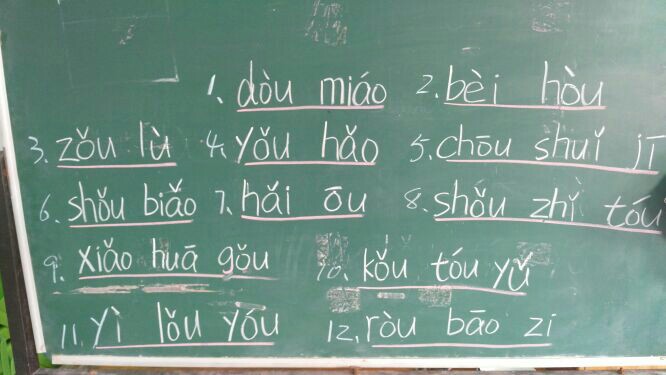 1. dòu miáo 2. bèi hòu
3. zǒu lù 4. yǒu hǎo 5. chōu shuǐ jī
6. shǒu biǎo 7. hǎi ōu 8. shǒu zhǐ tóu
9. xiǎo huā gǒu 10. kǒu tóu yǔ
11. yì lǒu yóu 12. ròu bāo zi